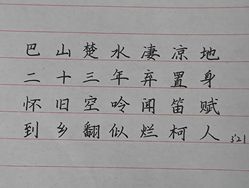 巴山楚水凄凉地
二十三年弃置身
怀旧空吟闻笛赋
到乡翻似烂柯人 521